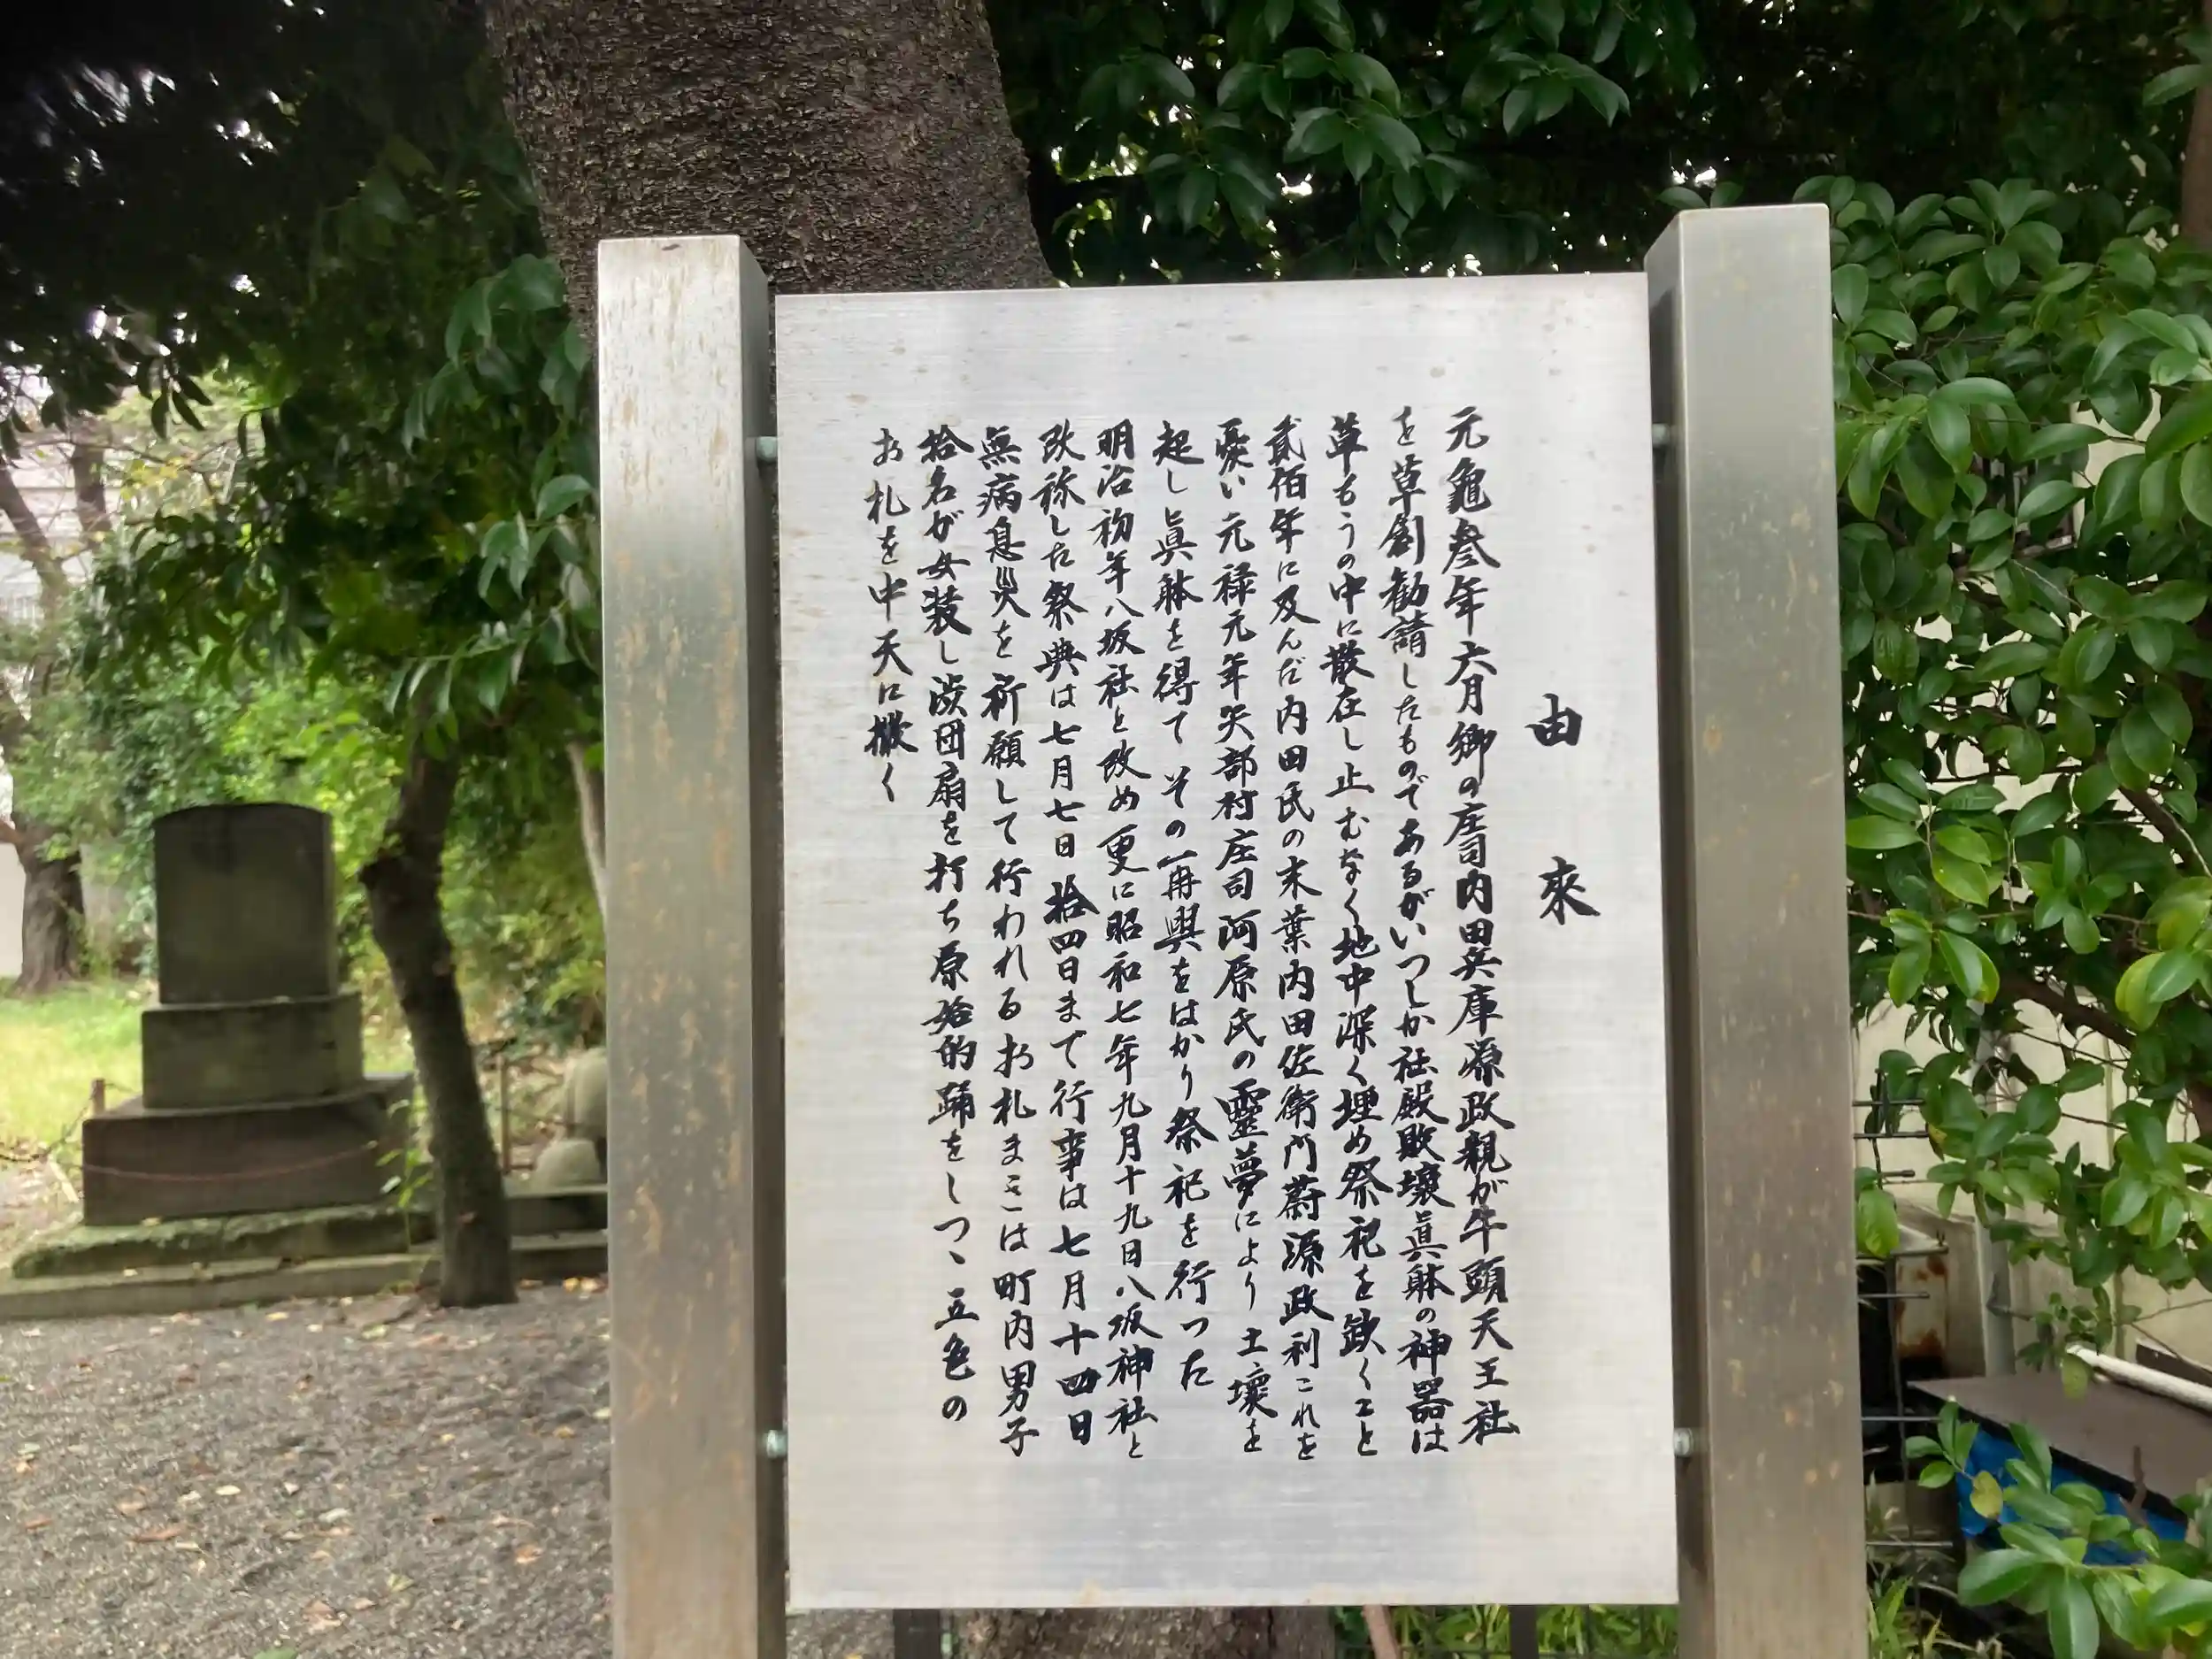 由來
元龜叄年六月郷の庄司内田兵庫源政親が牛頭天王社
を草創勧請したものであるがいつしか社殿敗壞眞躰の神器は
草もうの中に散在し止むなく地中深く埋め祭祀を欽くこと
貳佰年に及んだ内田氏の末葉内田佐衛門蔚源政利これを
憂い元禄元年矢部村庄司阿原氏の靈夢により土壞を
起し眞躰を得てその再興をはかり祭祀を行った
明治初年八坂社と改め更に昭和七年九月十九日八坂神社と
改称した祭典は七月七日拾四日まで行事は七月十四日
無病息災を祈願して行われるお札まきは町内男子
拾名が女装し渋団扇を打ち原始的踊をしつヽ五色の
お札を中天に撒く